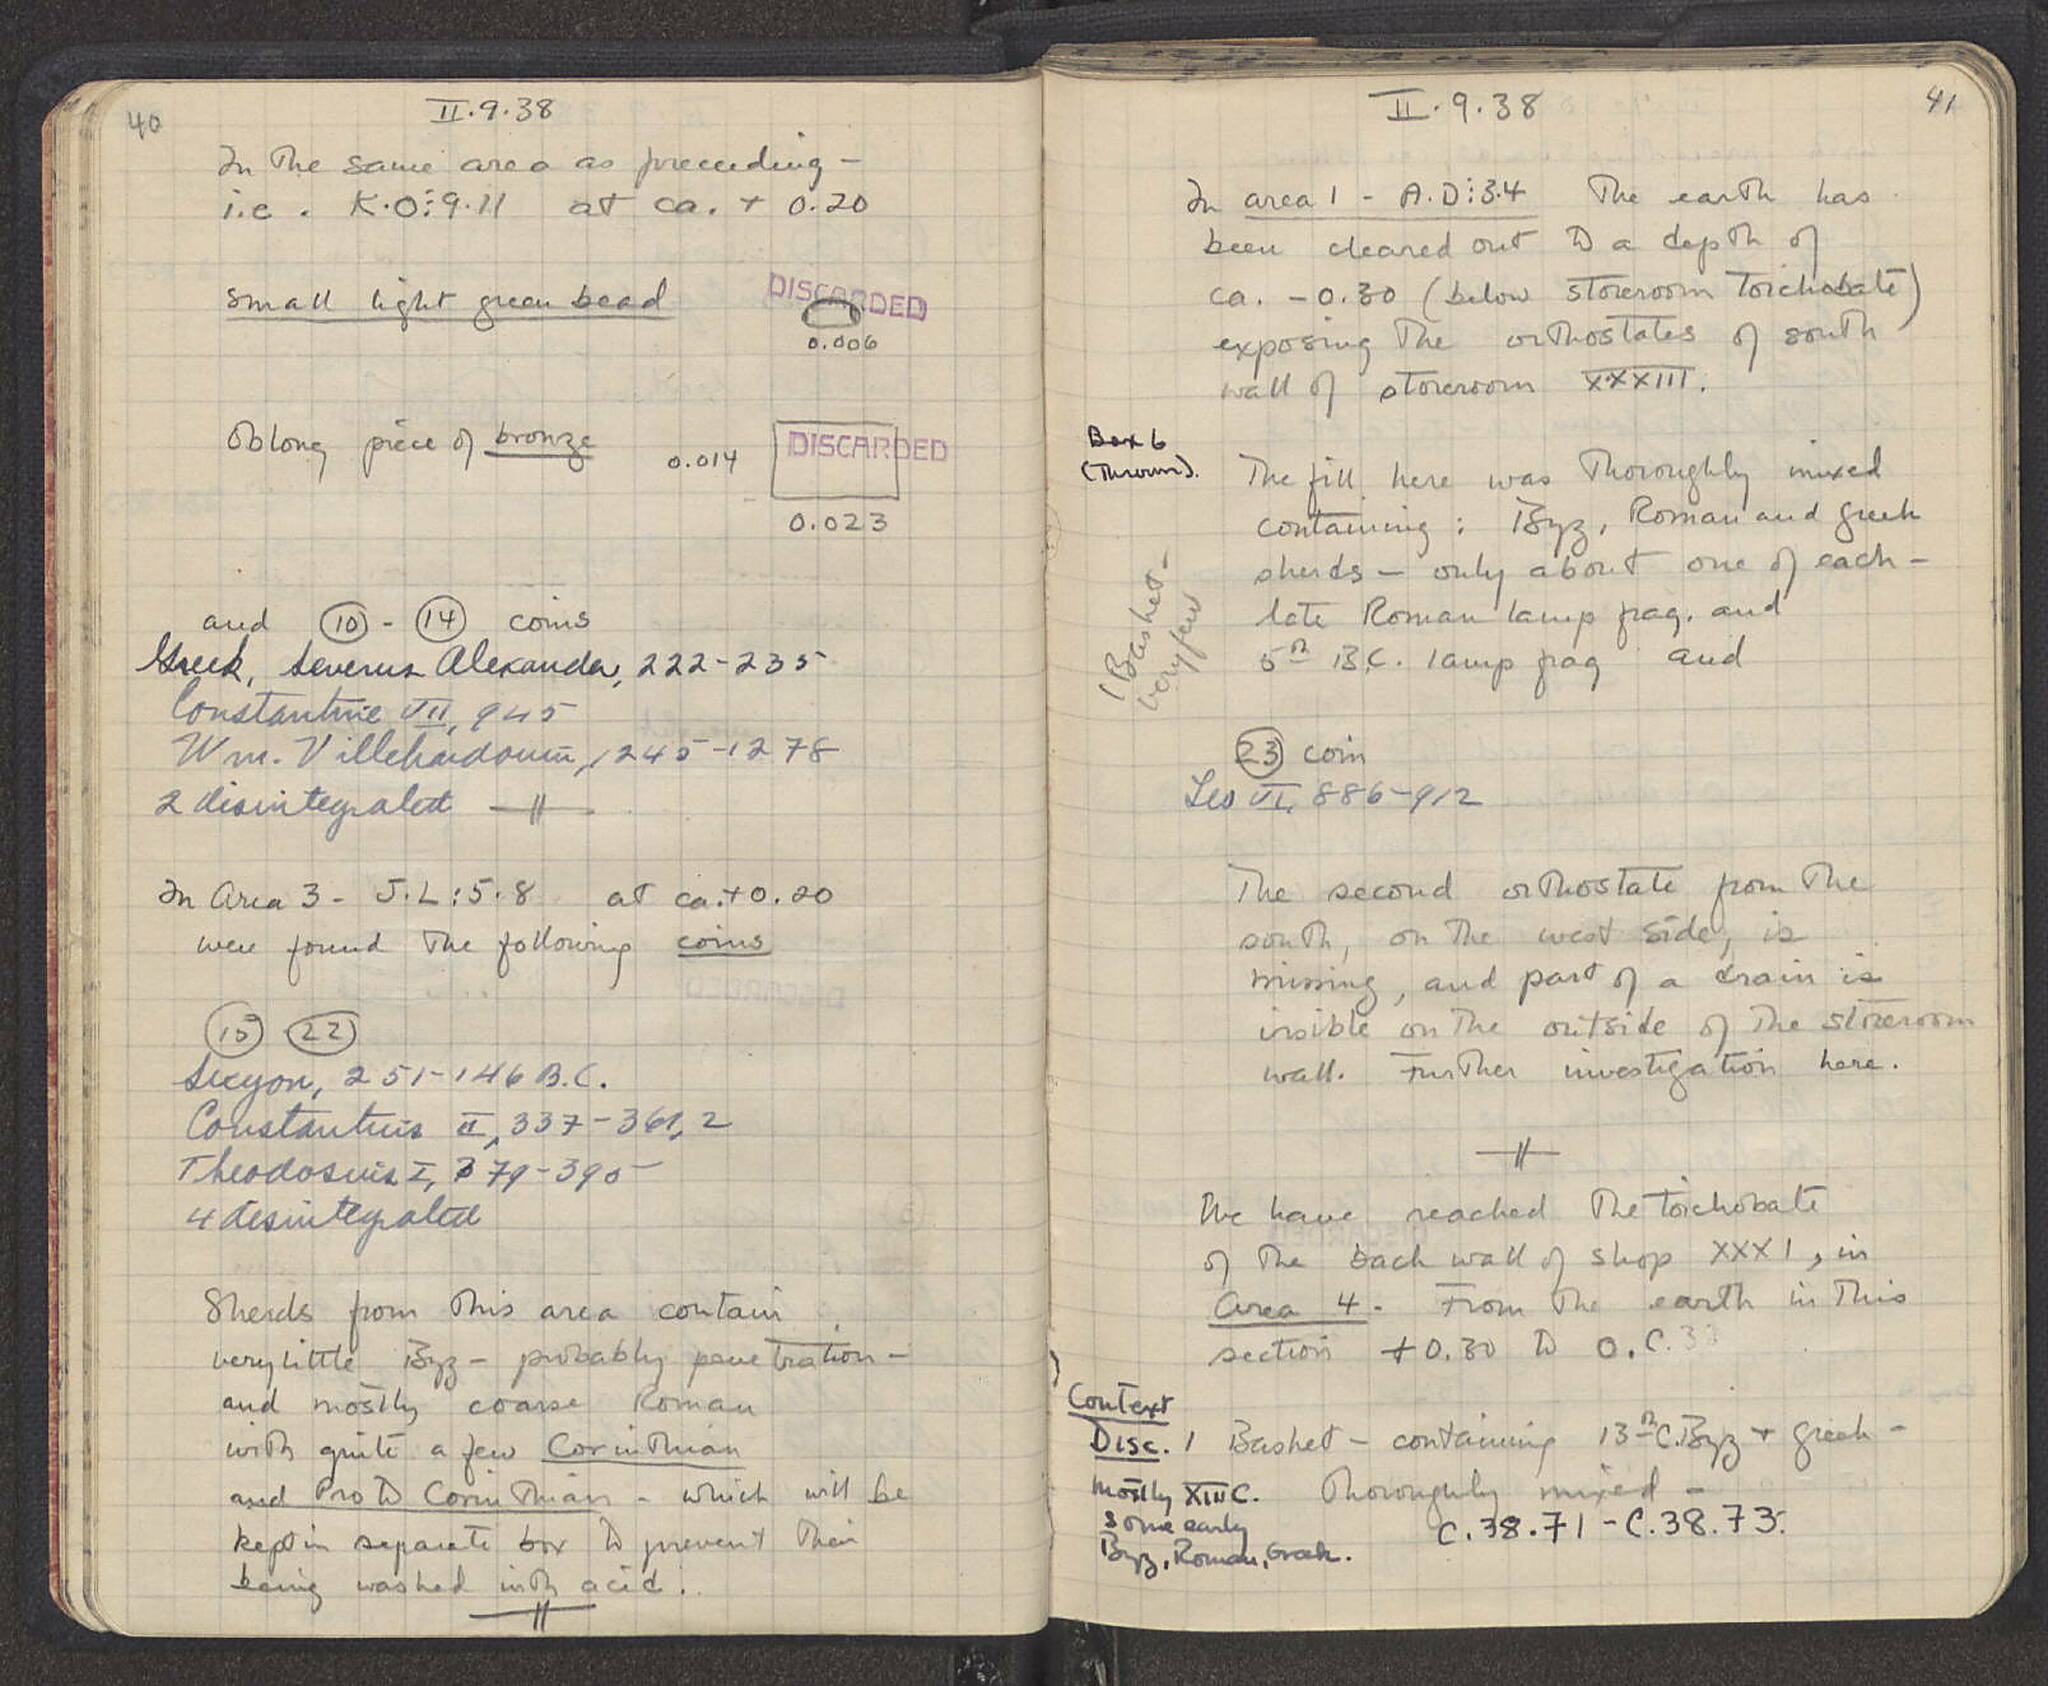 40
II.9.38
In the same area as preceding –
i.e. K.O:9.11 at ca. + 0.20
small light green bead
DISCARDED
0.006
Oblong piece of bronze 0.014
DISCARDED
0.023
and 10 - 14 coins
Greek, Severus Alexander, 222-235
Constantine VII, 945
Wm. Villehardouin, 1245-1278
2 disintegrated
In Area 3 - J.L:5.8 at ca.+0.20
were found the following coins
15 22
Sicyon, 251-146 B.C.
Constantius II, 337-361, 2
Theodosius I, 379-395
4 disintegrated
Sherds from this area contain
very little Byz – probably penetration –
and mostly coarse Roman
with quite a few Corinthian
and Proto Corinthian - which will be
kept in separate box to prevent their
being washed with acid.
41
II.9.38
In area 1 - A.D:3.4 The earth has
been cleared out to a depth of
ca. -0.30 (below storeroom toichobate)
exposing the orthostates of south
wall of storeroom XXXIII.
Box 6
(Thrown).
The fill here was thoroughly mixed
containing: Byz, Roman and Greek
sherds – only about one of each –
late Roman lamp frag. and
5th B.C. lamp frag and
1 Basket –
very few
23 coin
Leo VI, 886-912
The second orthostate from the
south, on the west side, is
missing, and part of a drain is
visible on the outside of the storeroom
wall. Further investigation here.
We have reached the toichobate
of the back wall of shop XXXI, in
Area 4. From the earth in this
section +0.30 to 0.
Context
Disc. 1 Basket – containing 13th C. Byz + Greek –
Mostly XIII C. Thoroughly mixed –
some early
C.38.71 - C.38.73.
Byz, Roman, Greek.